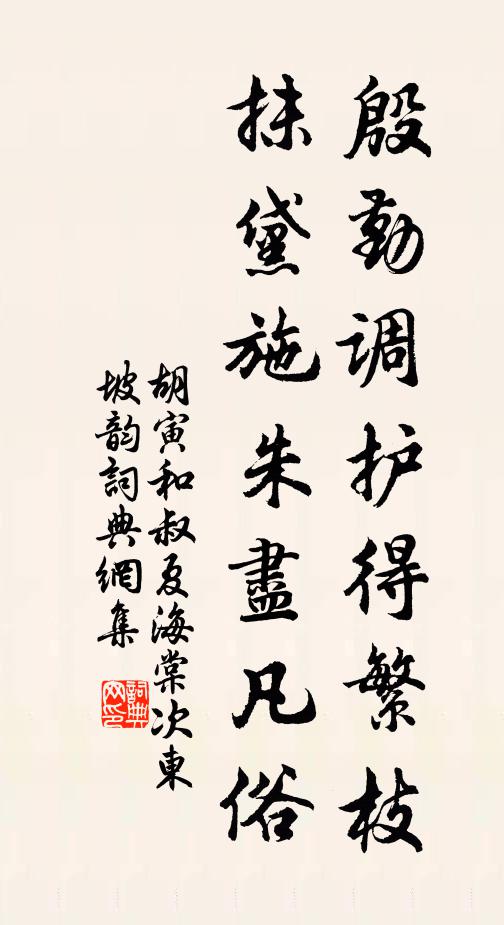 殷勤调护得繁枝
抹黛施朱盡凡俗
胡寅和叔夏海棠次東
坡韵詞典網集
詞典网印